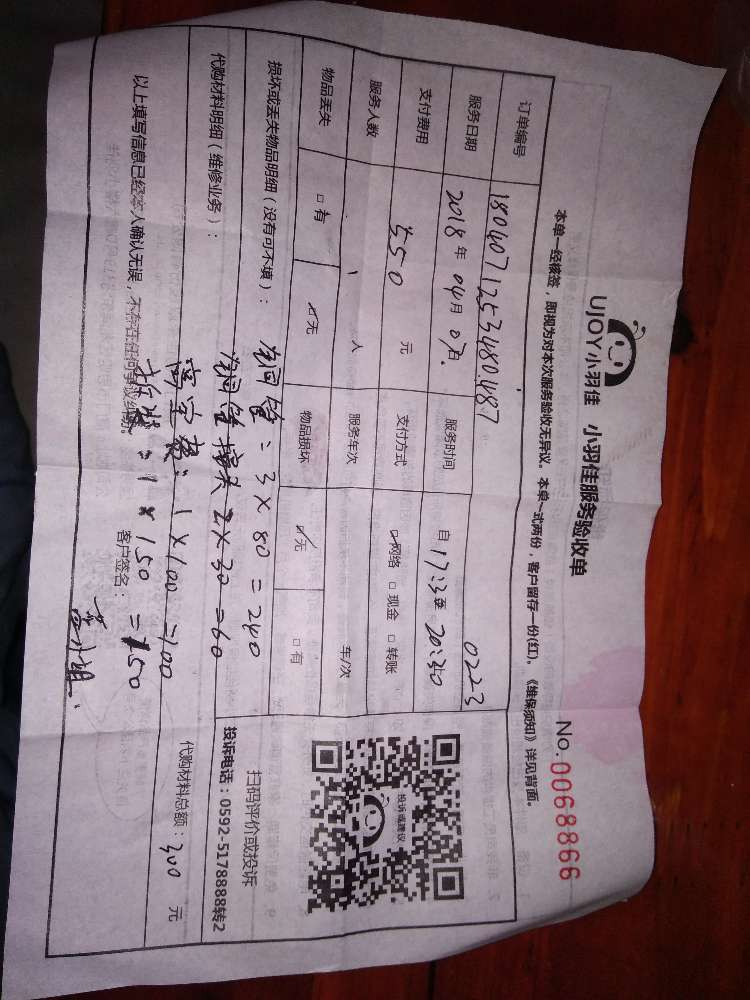 UJOY小羽佳 小羽佳服务验收单
No.0068866
本单一经核签，即视为对本次服务验收无异议。本单一式两份，客户留存一份(红)。《维保须知》详见背面。
订单编号 180407125348048​7 0223
服务日期 2018年04月07日. 服务时间 自17:3至20:30
支付费用 550 元 支付方式 ☑网络 □现金 □转账
服务人数 1 人 服务车次 车/次
物品丢失 □有 ☑无 物品损坏 ☑无 □有
损坏或丢失物品明细（没有可不填）：
代购材料明细（维修业务）：
铜管: 3×80=240
铜管接头 2×30=60
高空费: 1×100=100
拆装: 1×150=150
投诉或建议
扫码评价或投诉
投诉电话：0592-5178888转2
代购材料总额：300 元
以上填写信息已经本人确认无误，不存在任何争议纠纷。
客户签名：